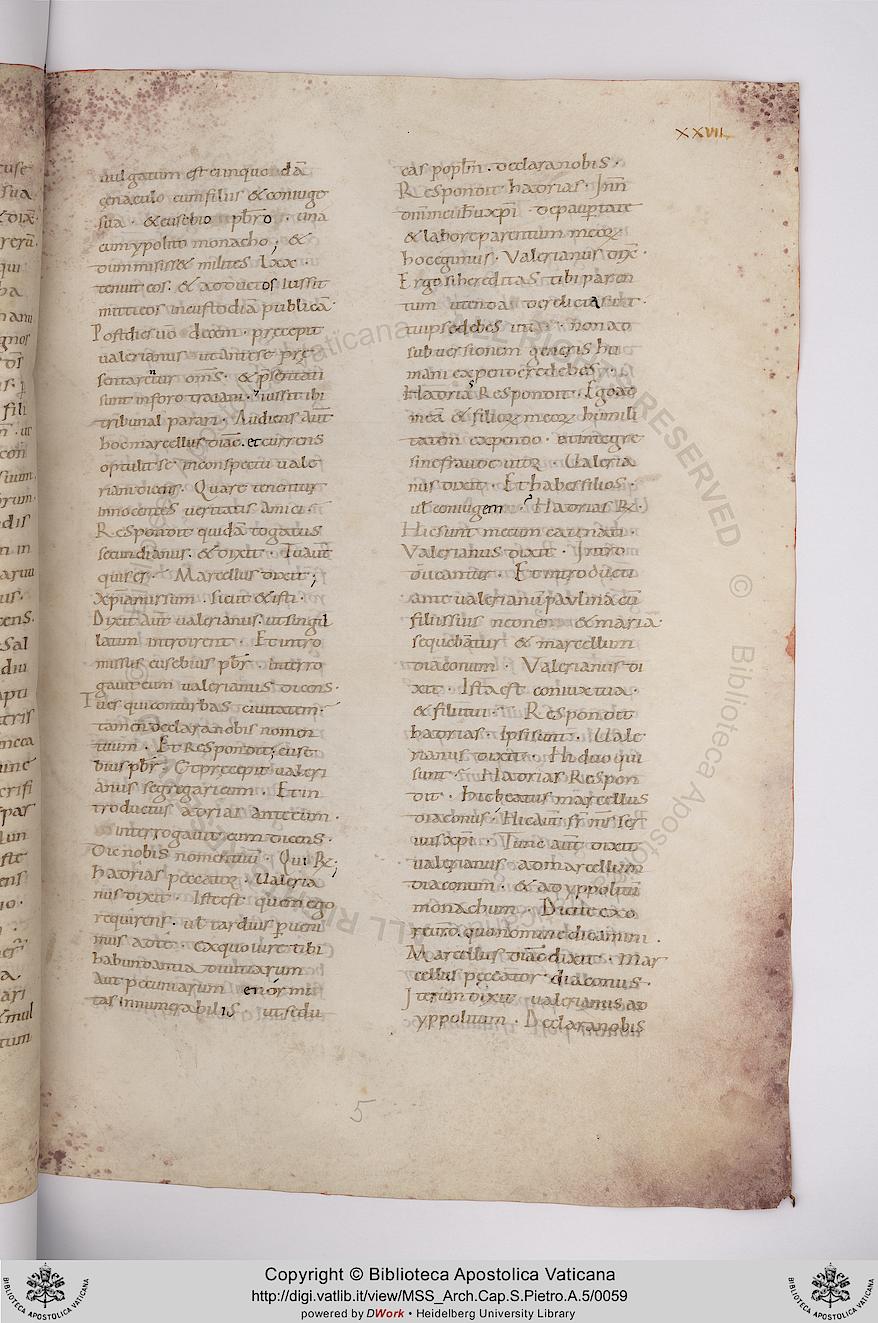 XXVII
uulgatum est cumquodā
cenaculo cumfiliis &coniuge
sua · &eusebio pb̄ro · una
cumypolito monacho; &
dum misiss& milites Lxx ·
tenuit eos · & adductos iussit
mitti eos incustodiā publicā
Postdies uō decem · precepit
ualerianus utantese pre
sentarentur om̄s · & p̄sentati
sunt inforo traiani · iussit ibi
tribunal parari · Audiens aūt
hoc marcellus diac̄ · et currens
optulit se inconspectu uale
riani dicens · Quare tenentur
innocentes ueritatis amici ·
Respondit quidā togatus
secundianus · & dixit · Tu aūt
quis es · Marcellus dixit;
Xp̄ianus sum · sicut & isti ·
Dixit aūt ualerianus · ut singil
latim introirent · Et intro
missus eusebius pb̄r · interro
gauit eum ualerianus dicens ·
Tu es qui conturbas ciuitatem ·
tamen declara nobis nomen
tuum · Et Respondit; euse
bius pb̄r · Et precepit ualeri
anus segregari eum · Et in
troductus adrias ante eum ·
interrogauit eum dicens ·
Dic nobis nomen tuū · Qui R;
hadrias peccator · Ualeria
nus dixit · Iste est quem ego
requirens · ut tardius p̄ueni
mus ad te · ex quo uire tibi
habundantia diuitiarum
Aut pecuniarum enormi
tas innumerabilis · ut sedu
cas popl̄m · declara nobis ·
Respondit hadrias · In n̄
omine dn̄i ih̄u xp̄i de paup̄tate
& labore parentum meoꝝ
hoc egimus · Valerianus dix̄ ·
Ergo si hereditas tibi paren
tum utenda derelicta sunt ·
tu ipse debes uti · non ad
subuersionem generis hu
mani expendere debes ·
Hadrias Respondit · Ego ad
meā & filioꝝ meoꝝ humili
tatem expendo · et integre
sine fraude utor · Ualeria
nus dixit · Et habes filios ·
uel coniugem? Hadrias R ·
Hic sunt mecum catenati ·
Valerianus dixit · Intro
ducantur · Et introducti
ante ualerianū paulina cū
filiis suis neone & maria
sequebatur & marcellum
diaconum · Valerianus di
xit · Ista est coniux tua ·
& filii tui · Respondit
hadrias · Ipsi sunt · Uale
rianus dixit · Hi duo qui
sunt · Hadrias Respon
dit · Hic beatus marcellus
diaconus · Hic aūt fr̄ n̄r ser
uus xp̄i · Tunc aūt dixit
ualerianus ad marcellum
diaconum · & ad yppolitū
monachum · Dicite ex o
re ur̄o quo nomine dicamini ·
Marcellus diac̄ dixit · Mar
cellus peccator diaconus ·
Iterum dixit ualerianus ad
yppolitum · Declara nobis
5
Copyright © Biblioteca Apostolica Vaticana
http://digi.vatlib.it/view/MSS_Arch.Cap.S.Pietro.A.5/0059
powered by DWork • Heidelberg University Library